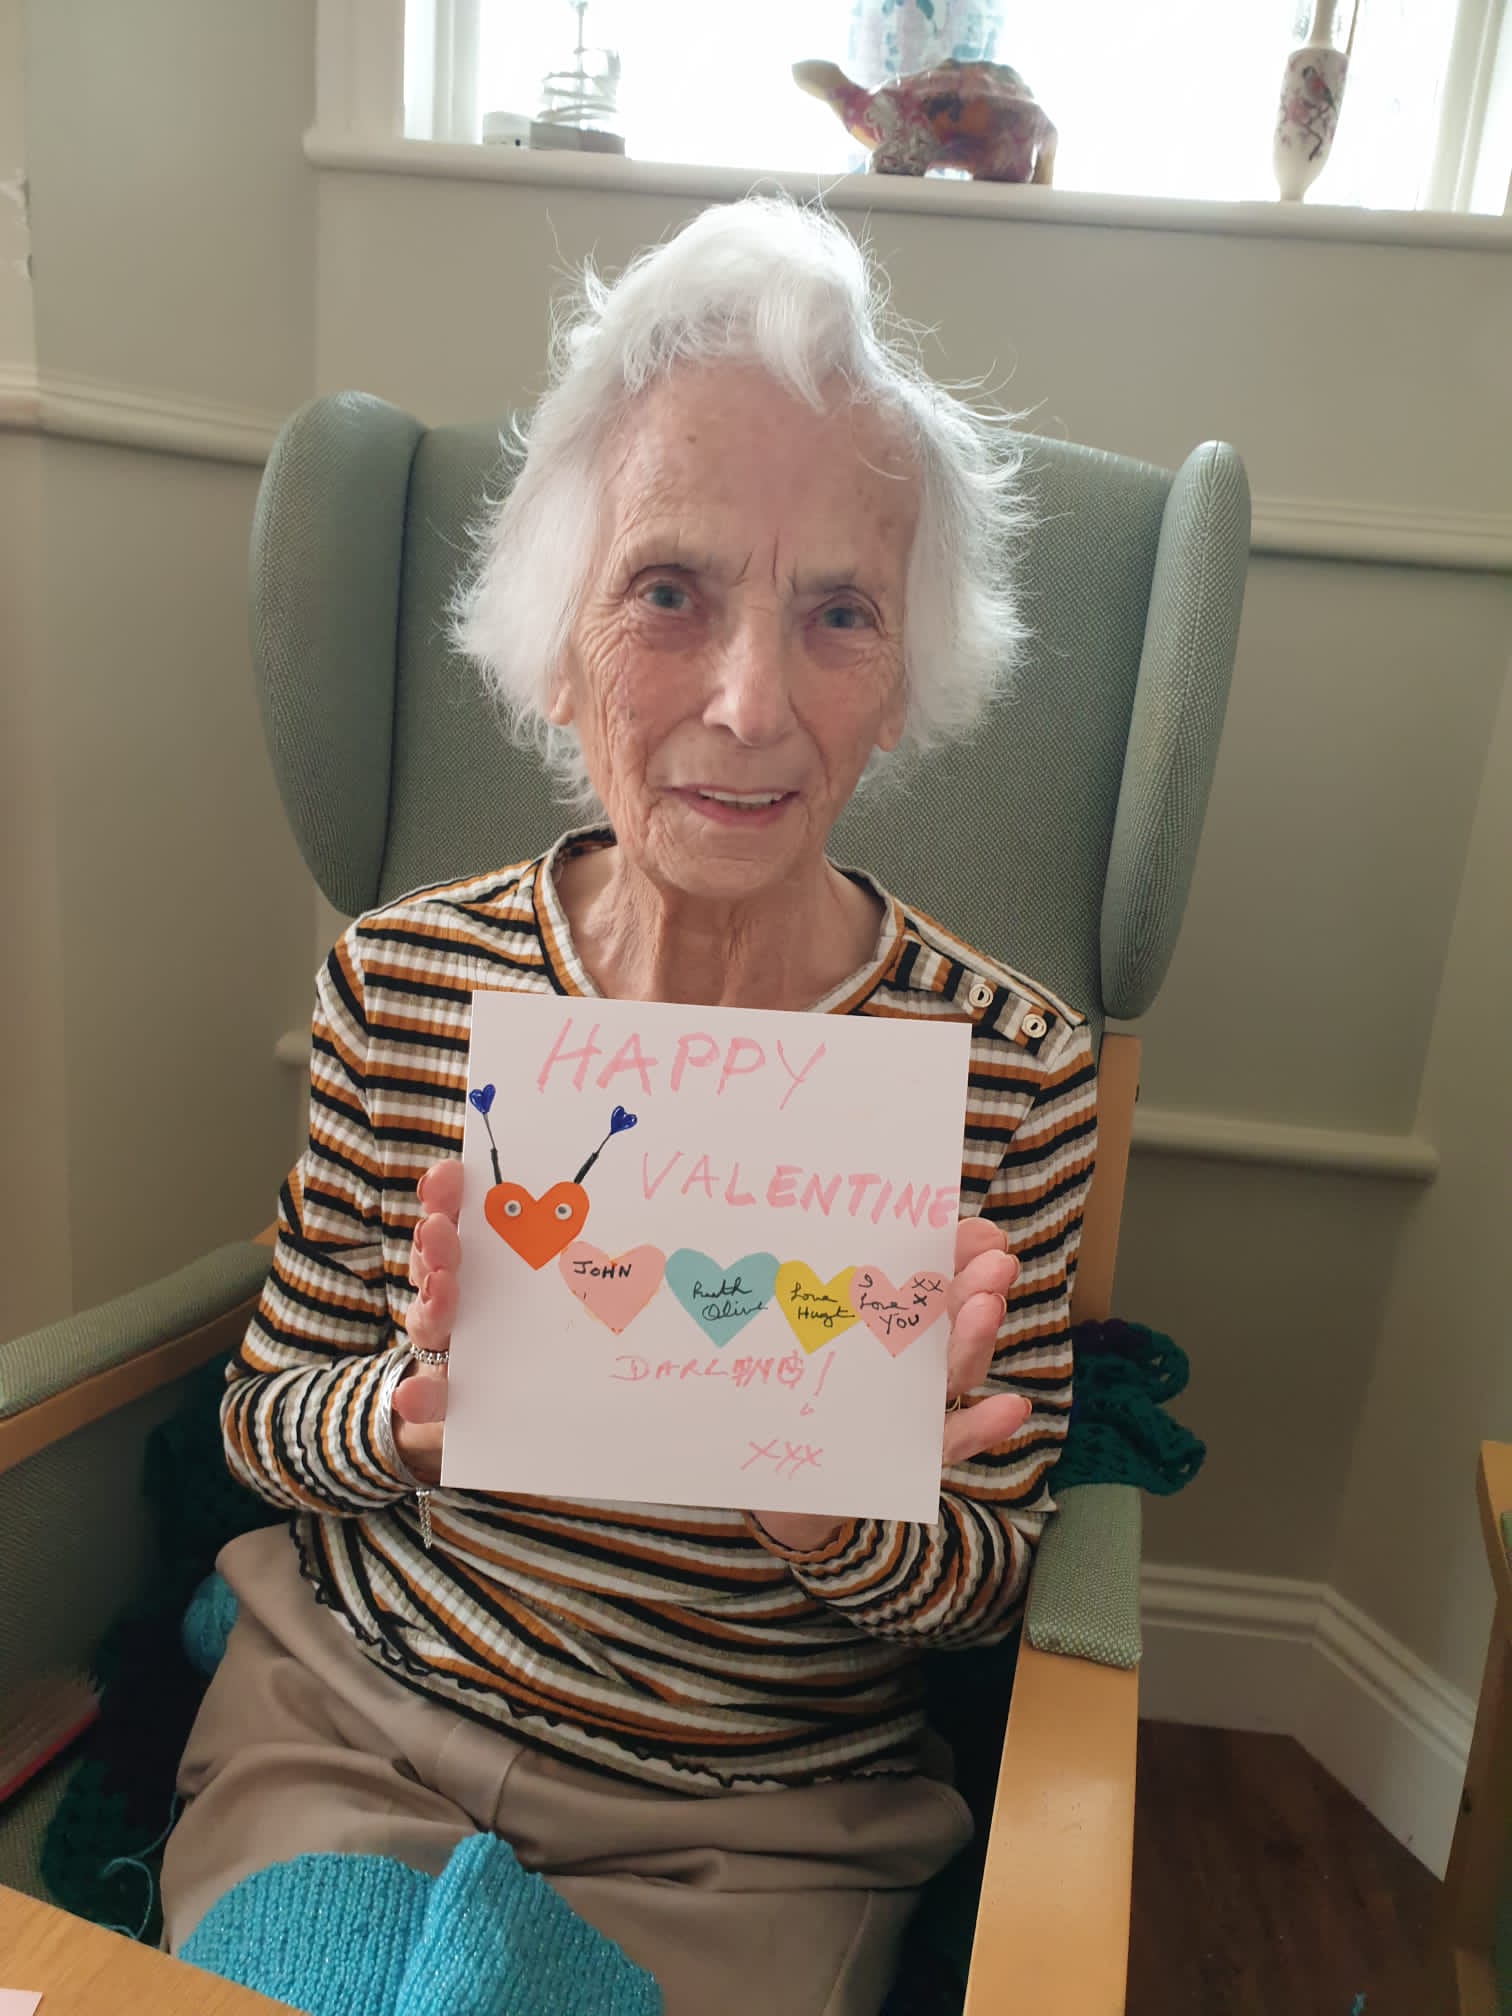 HAPPY
VALENTINE
JOHN
Ruth
Olive
Love
Hugh
I
Love
YOU
XX
X
DARLING!
XXX